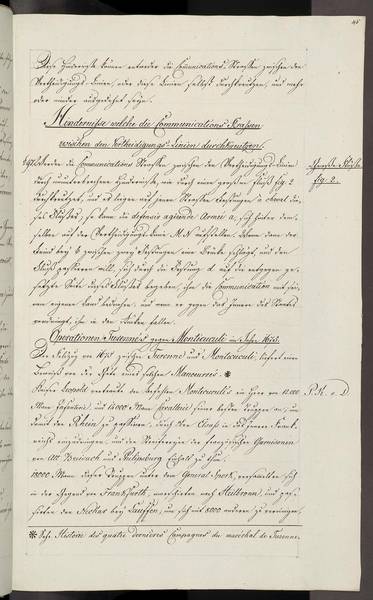 45
Diese Hindernisse können entweder die Communications-Strassen zwischen den
Vertheidigungs-Linien, oder diese Linien selbst durchkreutzen, und mehr
oder minder ausgedehnt seyn.
Hindernisse welche die Communications-Strassen
zwischen den Vertheidigungs-Linien durchkreutzen.
Werden die Communications Strassen zwischen den Vertheidigungs-Linien
durch Hindernisse, wie durch einen großen Fluß fig. 2
durchkreutzt, und es liegen auf jener Strassen Festungen à cheval die-
ses Flußes, so kann die defensiv agirende Armee a, sich hinter dem-
selben auf der Vertheidigungs-Linie M.N aufstellen. Wenn dann der
Feind bey b zwischen zwey Festungen eine Brücke schlägt, und den
Fluß passiren will, sich durch die Festung d auf die entgegen ge-
setzte Seite dieses Flußes begeben, ihm die Communication mit sei-
nem eigenen Lande bedrohen, und wenn er gegen das Innere des Landes
vordringt, ihm in den Rücken fallen.
Operationen Turenne's gegen Montecuculi im Jahr 1675.
Der Feldzug von 1675 zwischen Turenne und Montecuculi, liefert einen
Beweis von der Güte eines solchen Manoeuvres. ※
Kaiser Leopold vertraute den Befehlen Montecuculi's ein Heer von 12.000
Mann Infanterie und 18000 Mann Cavallerie seiner besten Truppen an, um
damit den Rhein zu passiren, durch den Elsass in das Innere Frank-
reichs einzudringen, und den Streifereyen der französischen Garnisonen
von Alt Breisach und Philipsburg Einhalt zu thun.
18000 Mann dieser Truppen unter dem General Spork, versammelten sich
in der Gegend von Frankfurth, marschirten nach Heilbronn, und pas-
sirten den Neckar bey Lauffen, um sich mit 8000 andern zu vereinigen,
※ Siehe Histoire des quatre dernieres Campagnes du maréchal de Turenne.
fig. 2.